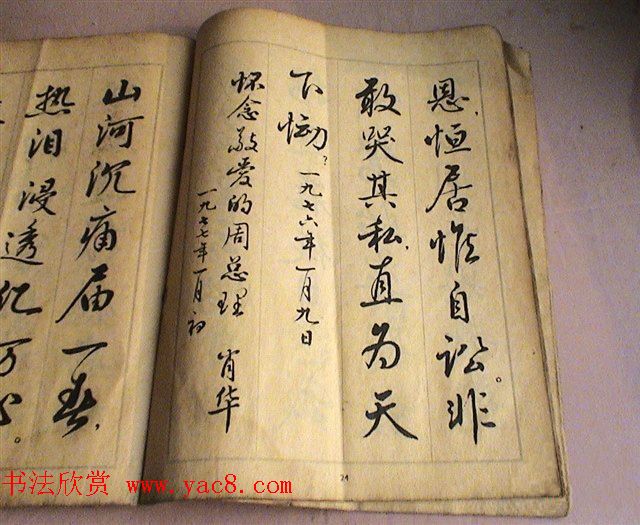 恩，恒居惟自讼。非
敢哭其私，直为天
下恸？一九七六年一月九日
怀念敬爱的周总理 肖华
一九七七年一月初
山河沉痛届一春，
热泪浸透亿万心。
24
书法欣赏 www.yac8.com